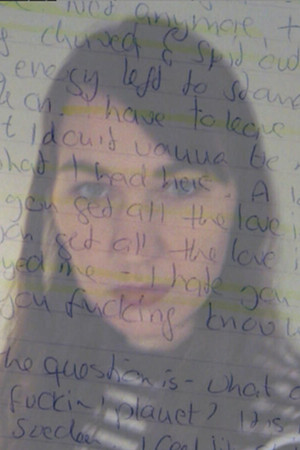 anymore, t
chewed & spit out
energy left to stand
have to leave
t I don't wanna be
what I had here. A l
you get all the love i
you get all the love i
yed me - I hate you
you fucking know
the question is - what
fuckin' planet? It is
Sweden I feel li